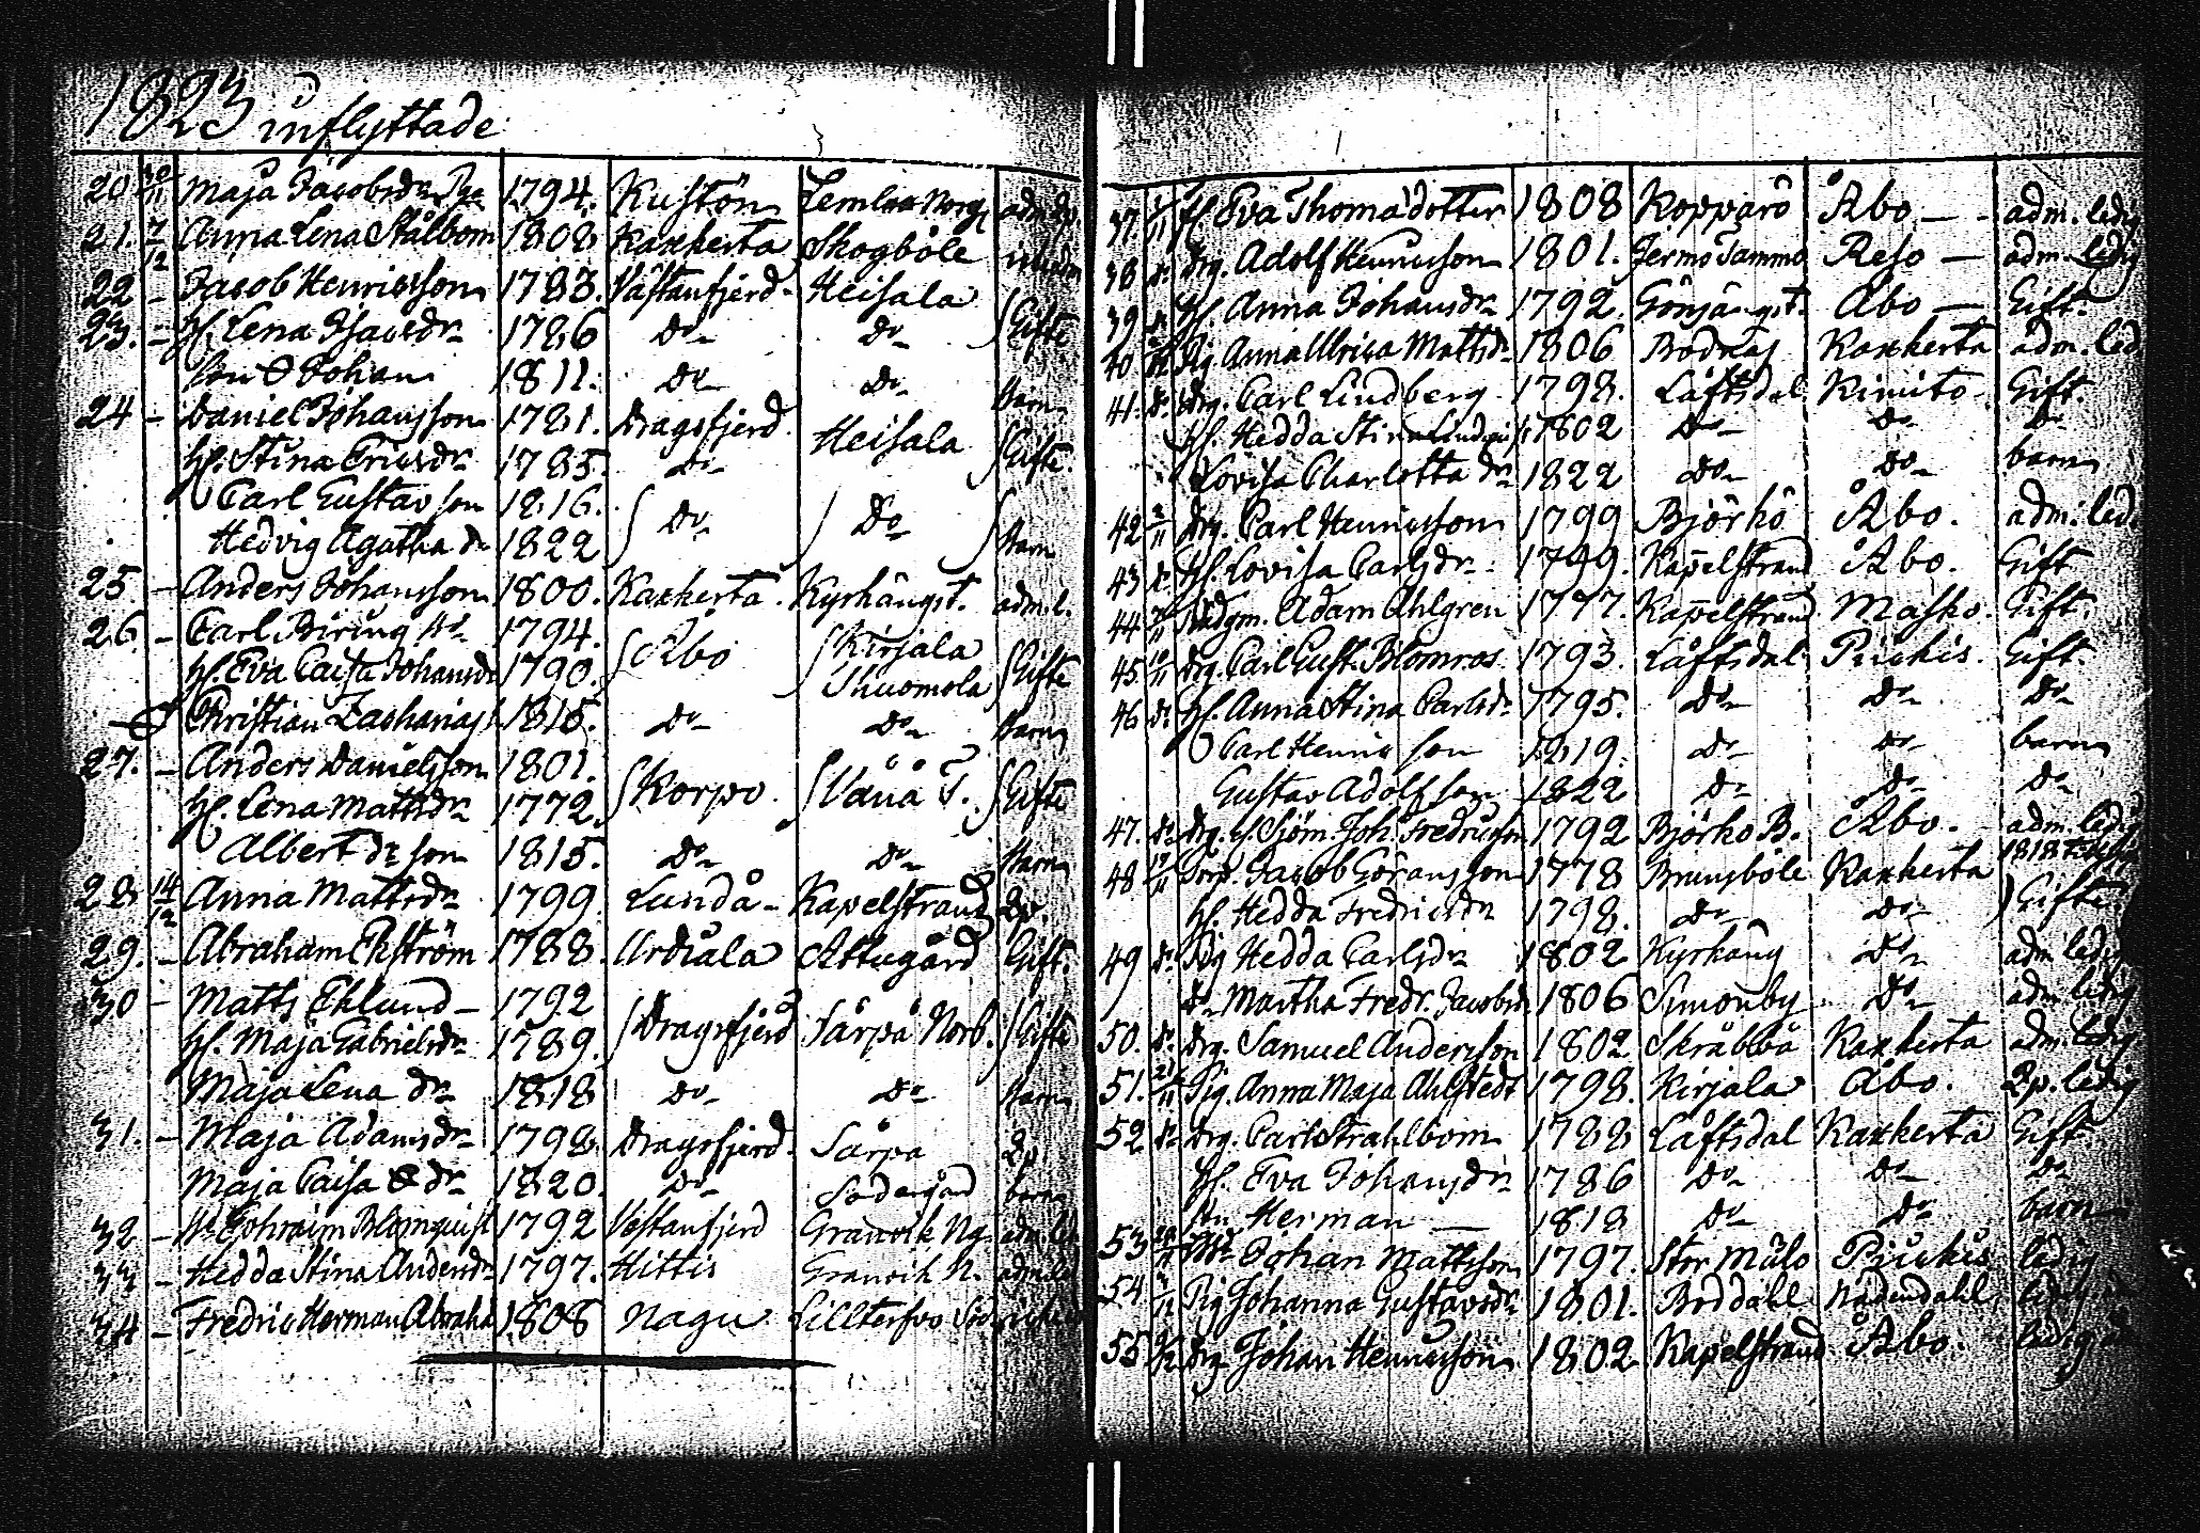 1823 inflyttade
20. 30/11 Maja Jacobsdr Pga 1794. Kustön Lemlax Norg adm. 2p.
21. 7/12 Anna Lena Stålbom 1808 Kaxkerta Skogböle
22 - Jacob Henricsson 1783. Västanfjerd Heisala
23. - H. Lena Isacsdr 1786 do do Gifte
son Johan 1811. do do barn
24 - Daniel Johansson 1781. Dragsfjerd Heisala Gifte
H. Stina Ericsdr 1785. do
Carl Gustav son 1816. do do barn
Hedvig Agatha dr 1822
25. - Anders Johansson 1800. Kaxkerta Kyrkängst. adm. l.
26. - Carl Biring 1794. Åbo Kirjala Gifte
H. Eva Caisa Johansdr 1790. Shuomola
Christian Zacharias 1815. do do barn
27. - Anders Danielsson 1801. Korpo Vånå T. Gifte
H. Lena Mattsdr 1772.
Albert son 1815. do do barn
28 14/12 Anna Mattsdr 1799 Lundå Kapelstrand 2p.
29. - Abraham Ekström 1788. Ardiala Attugård Gift.
30 - Matts Eklund 1792 Dragsfjerd Särpä Norb. Gifte
H. Maja Gabrielsdr 1789.
Maja Lena dr 1818 do do barn
31. - Maja Adamsdr 1798. Dragsfjerd Särpä 2p
Maja Caisa dr 1820. do Södergård barn
32 - Ephraim Blomquist 1792 Vestanfjerd Granvik Ng. adm. led
33 - Hedda Stina Andersdr 1797. Hittis Granvik N. adm. led
34 - Fredric Herman Abraha 1808 Nagu Lilltervo Söd
37. H. Eva Thomadotter 1808 Kopparö Åbo - adm. ledig
38 do drg. Adolf Henricsson 1801. Jermo Sammo Reso - adm. ledig
39 do H. Anna Johansdr 1792. Gönjängst. Åbo - Gift.
40 Pig Anna Ulrica Mattsdr 1806 Bodnäs Kaxkerta adm. led.
41. do drg. Carl Lindberg 1798. Låftsdal Kimito Gift.
H. Hedda Stina Lindqvist 1802 do do do
Lovisa Charlotta dr 1822 do do barn
42 2/11 drg. Carl Henricsson 1799 Björkö Åbo. adm. led.
43 do H. Lovisa Carlsdr 1799. Kapelstrand Åbo. Gift
44 7/11 Adam Ahlgren 1777. Kapelstrand Masko. Gift.
45 10/11 drg. Carl Gust. Blomros 1793. Låftsdal Piickis. Gift.
46 do H. Anna Stina Carlsdr 1795. do do do
Carl Henric son 1819. do do barn
Gustav Adolf son 1822 do do do
47. do drg. Sjöm Joh. Fredricsson 1792 Björko B. Åbo. adm. ledig
48 17/11 Torp. Jacob Göransson 1778 Brunsböle Kaxkerta Gifte.
H. Hedda Fredricsdr 1798. do do
49 do Pig Hedda Carlsdr 1802 Kyrkäng do adm ledig
do Martha Fredr. Jacobsd. 1806 Simonby do adm ledig
50. do drg. Samuel Andersson 1802 Skräbbä Kaxkerta adm. ledig
51. 21/11 Pig. Anna Maja Ahlstedt 1798. Kirjala Åbo. 2p. ledig
52 do drg. Carl Strahlbom 1788 Låftsdal Kaxkerta Gift
H. Eva Johansdr 1786 do do do
son Herman - 1818 do do barn
53 28/11 Johan Mattsson 1797. Stor Mälo Piickis ledig
54 Pig Johanna Gustavsdr 1801. Boddahl Nådendahl ledig
55 drg Johan Henricsson 1802 Kapelstrand Åbo. ledig